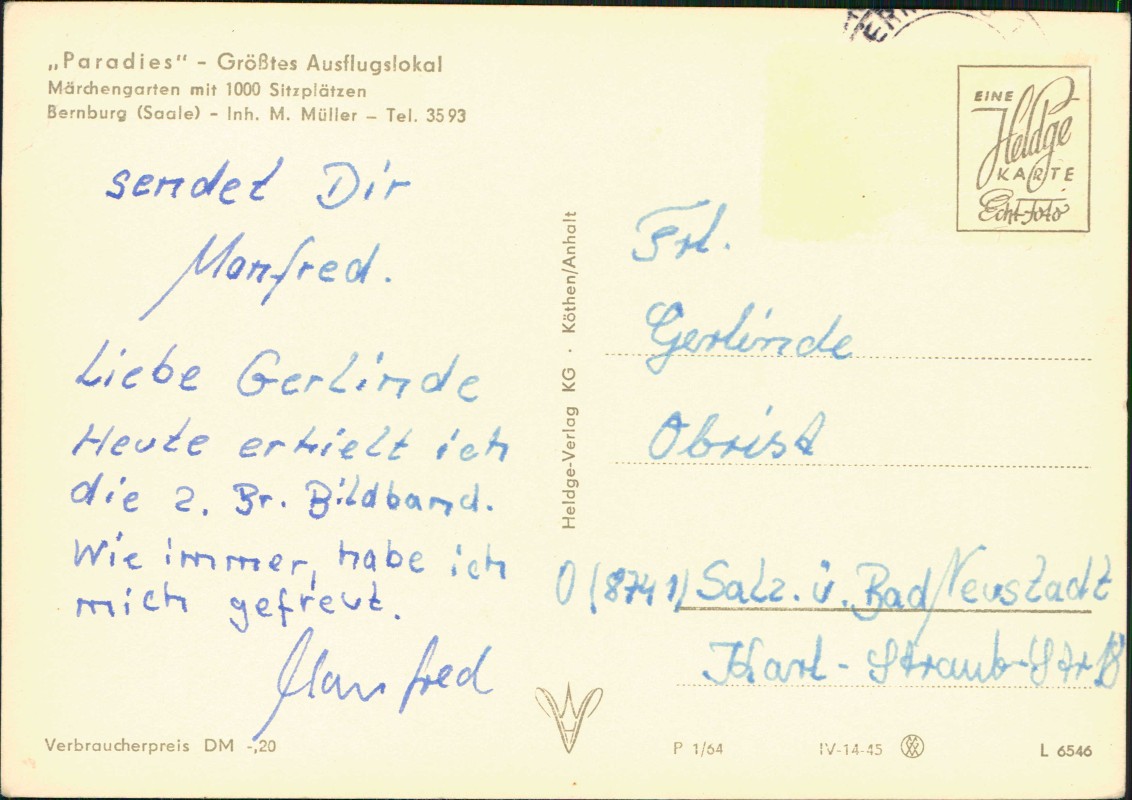 „Paradies" - Größtes Ausflugslokal
Märchengarten mit 1000 Sitzplätzen
Bernburg (Saale) - Inh. M. Müller - Tel. 3593
sendet Dir
Manfred.
Liebe Gerlinde
Heute erhielt ich
die 2. Br. Bildband.
Wie immer, habe ich
mich gefreut.
Manfred
Verbraucherpreis DM -,20
Heldge-Verlag KG · Köthen/Anhalt
EINE
Heldge
KARTE
Echt-Foto
Frl.
Gerlinde
Obrist
(8741) Salz. ü. Bad/Neustadt
Karl-Straub-Str
P 1/64
IV-14-45
L 6546